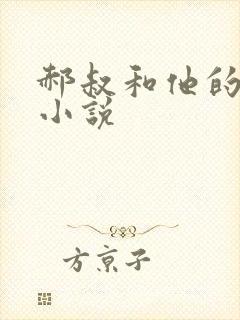 郝叔和他的
小说
方京子